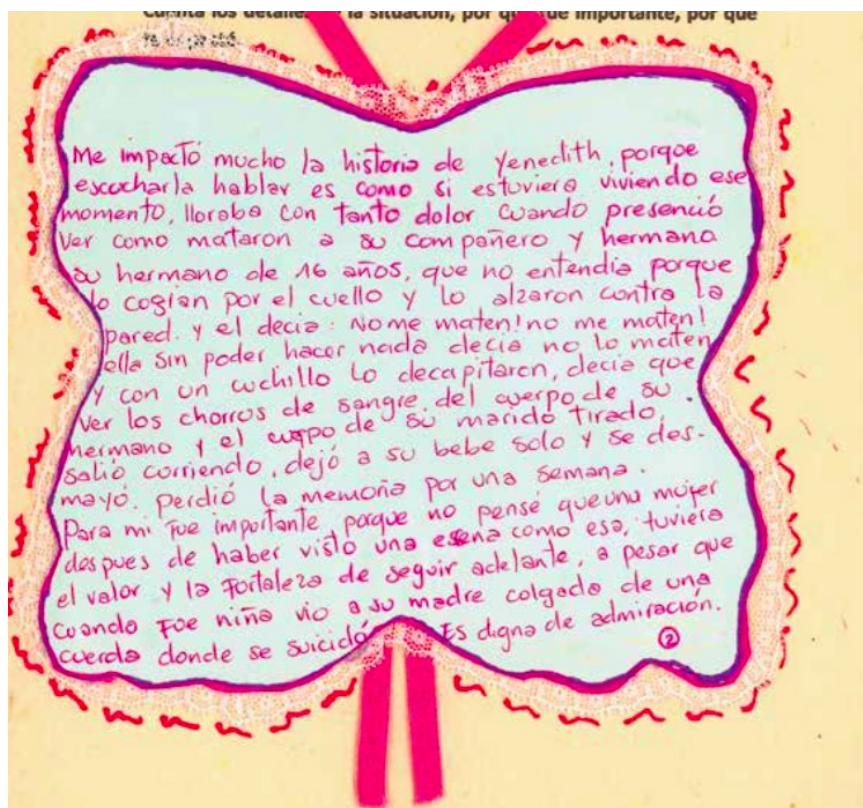 Cuenta los detalles la situación, por qué fue importante, por que
Me impactó mucho la historia de Yenedith, porque
escucharla hablar es como si estuviera viviendo ese
momento, lloraba con tanto dolor cuando presenció
ver como mataron a su compañero y hermano
su hermano de 16 años, que no entendia porque
lo cogian por el cuello y lo alzaron contra la
pared. y el decia: No me maten! no me maten!
ella sin poder hacer nada decia no lo maten
y con un cuchillo lo decapitaron, decia que
ver los chorros de sangre del cuerpo de su
hermano y el cuerpo de su marido tirado,
salió corriendo, dejó a su bebe solo y se des-
mayó. perdió la memoria por una semana.
Para mi fue importante porque no pensé que una mujer
despues de haber visto una esena como esa, tuviera
el valor y la fortaleza de seguir adelante, a pesar que
cuando fue niña vio a su madre colgada de una
cuerda donde se suicidó Es digna de admiración.
2